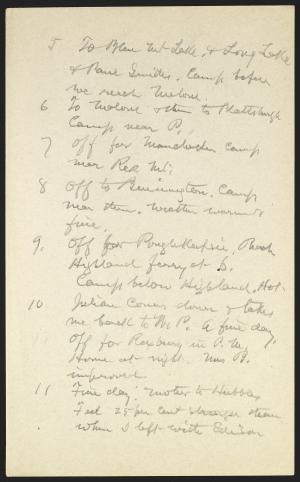 5 To Blue Mt Lake, & Long Lake
& Paul Smiths. Camp before
we reach Malone.
6 To Malone & then to Plattsburgh
Camp near P.
7 Off for Manchester Camp
near
8 Off to Bennington. Camp
near there. Weather warm &
fine.
9. Off for Poughkeepsie, Reach
Highland ferry at 5.
Camp below Highland. Hot.
10 Julian comes down & takes
me back to W. P. A fine day
Off for Roxbury in P. M.
Home at night. Mrs B.
improved
11 Fine day. Mother to Hubbles
Feel 25 per cent stronger than
when I left with Edison